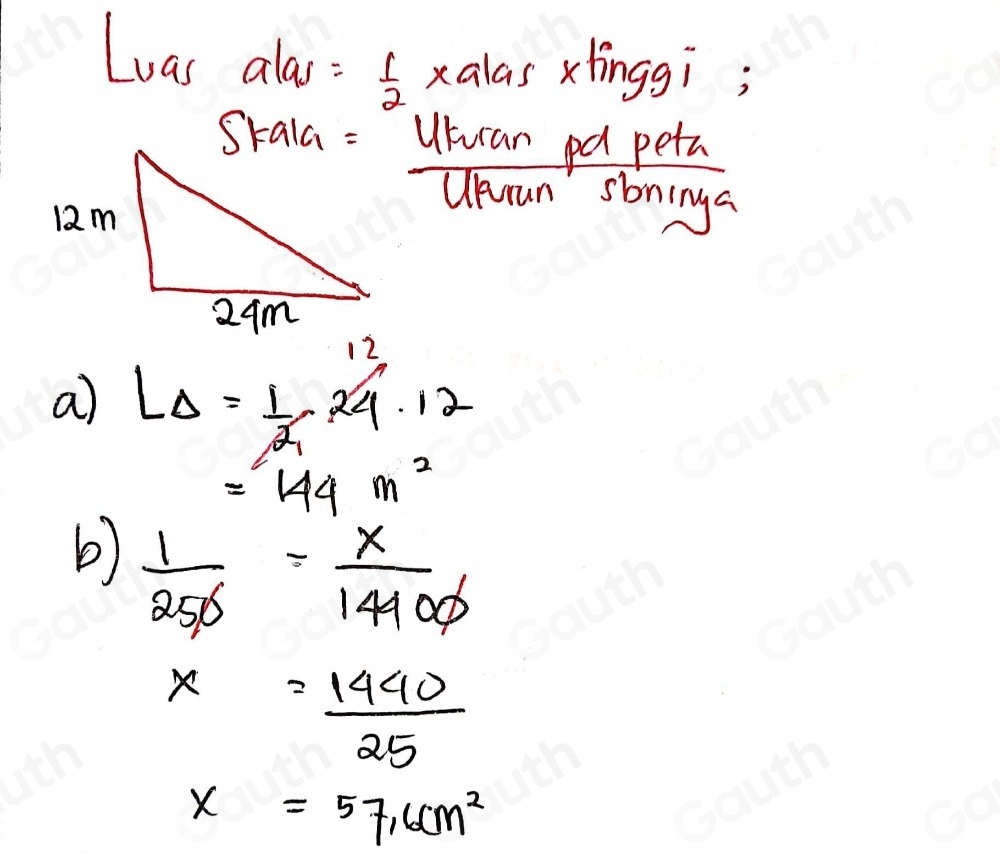 Luas alas = 1/2 x alas x tinggi ;
Skala = Ukuran pd peta / Ukuran sbnrnya
12 m
24m
12
a) L∆ = 1/2 . 24 . 12
1
= 144 m²
b) 1/250 = x/14400
x = 1440/25
x = 57,6cm²
Gauth